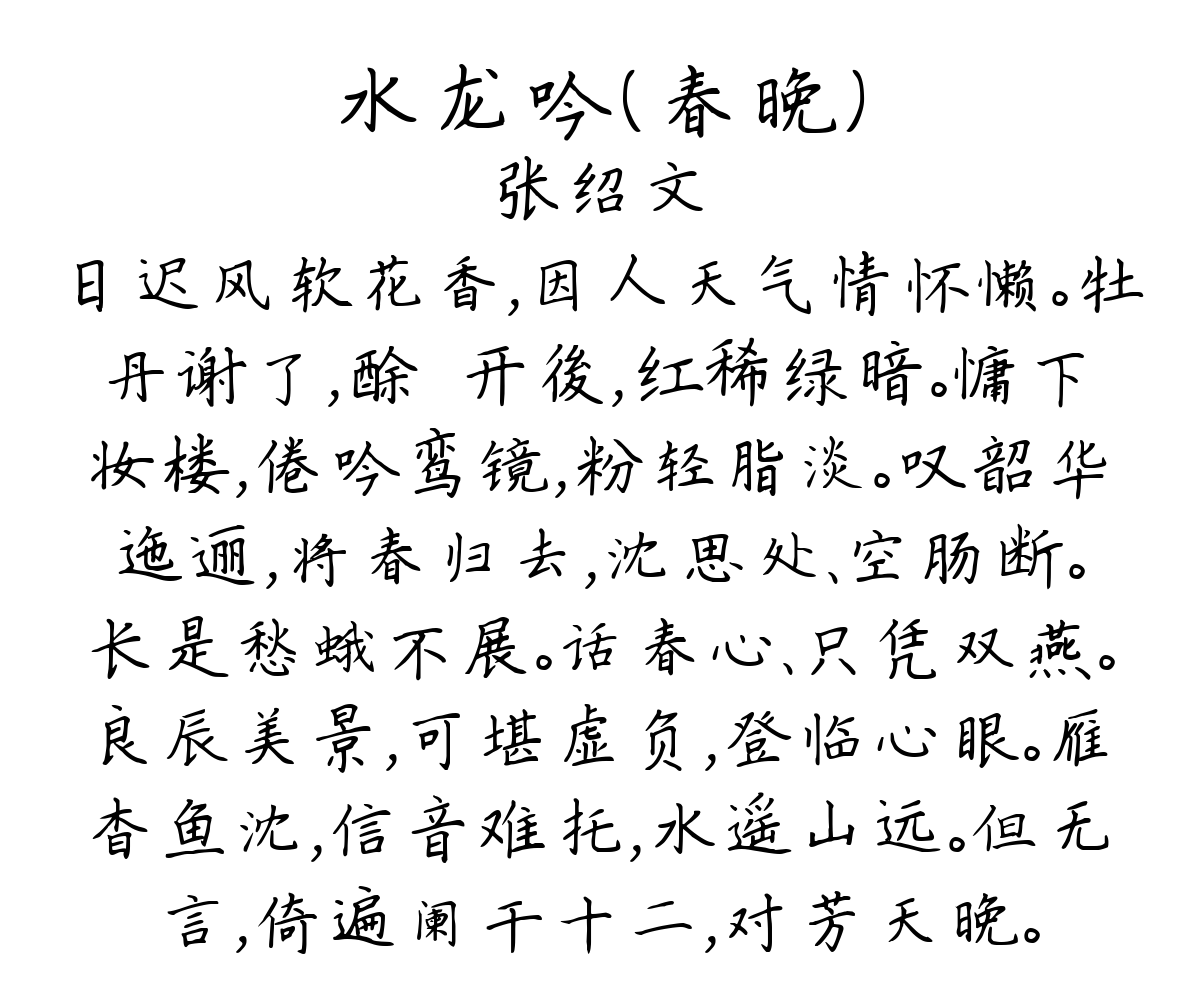 水龙吟(春晚)
张绍文
日迟风软花香,因人天气情怀懒。牡
丹谢了,酴 开後,红稀绿暗。慵下
妆楼,倦吟鸾镜,粉轻脂淡。叹韶华
迤逦,将春归去,沈思处、空肠断。
长是愁蛾不展。话春心、只凭双燕。
良辰美景,可堪虚负,登临心眼。雁
杳鱼沈,信音难托,水遥山远。但无
言,倚遍阑干十二,对芳天晚。